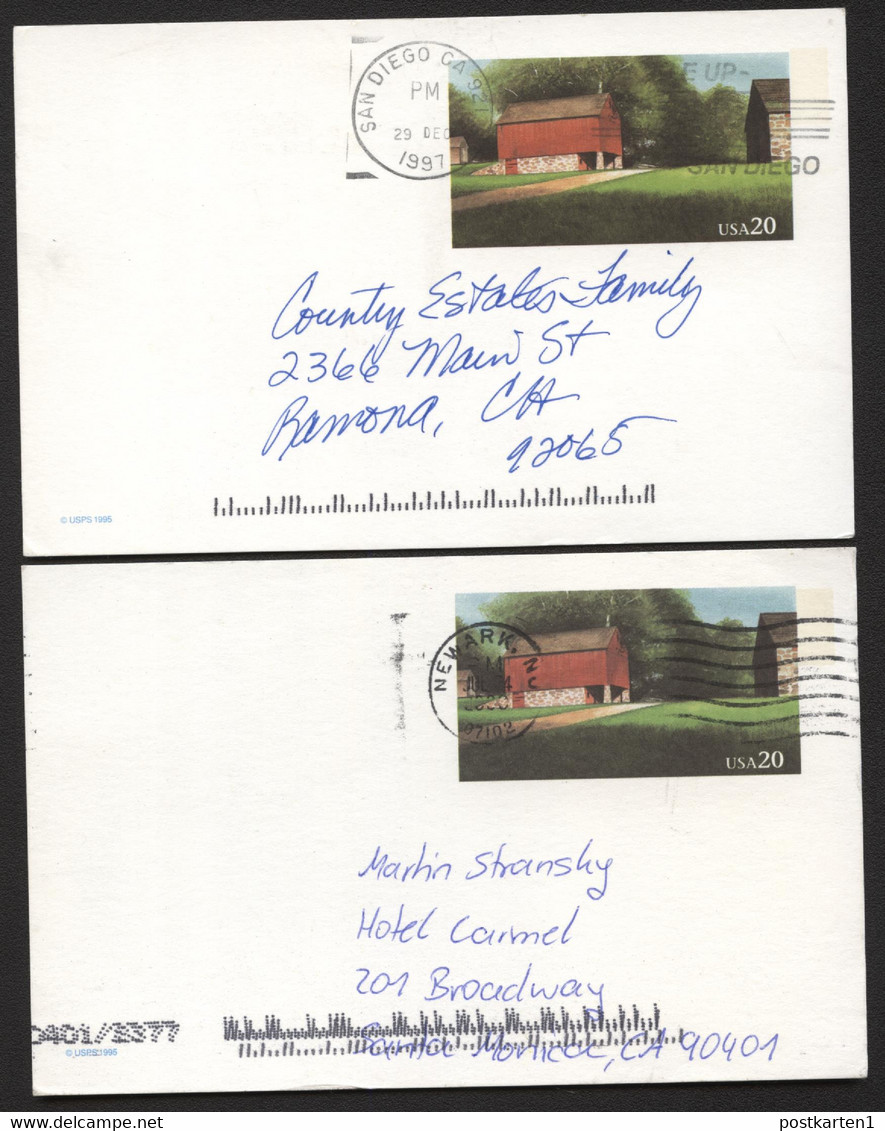 SAN DIEGO CA 92
PM
29 DEC
1997
E UP-
SAN DIEGO
USA 20
Country Estates Family
2366 Main St
Ramona, CA
92065
© USPS 1995
NEWARK, N
07102
USA 20
Martin Stransky
Hotel Carmel
201 Broadway
Santa Monica, CA 90401
0401/3377
© USPS 1995
postkarten1